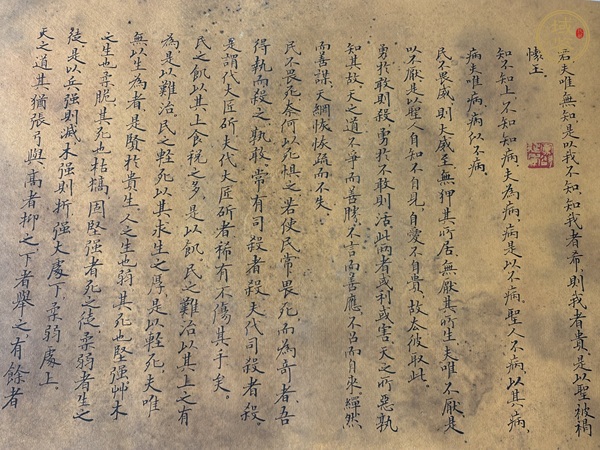 君夫唯無知是以我不知知我者希則我者貴是以聖被褐
懷玉
知不知上不知知病夫為病病是以不病聖人不病以其病
病夫唯病病似不病
民不畏威則大威至無狎其所居無厭其所生夫唯不厭是
以不厭是以聖人自知不自見自愛不自貴故去彼取此
勇於敢則殺勇於不敢則活此兩者或利或害天之所惡孰
知其故天之道不爭而善勝不言而善應不召而自來繟然
而善謀天網恢恢疏而不失
民不畏死奈何以死懼之若使民常畏死而為奇者吾
得執而殺之孰敢常有司殺者殺夫代司殺者殺
是謂代大匠斫夫代大匠斫者稀有不傷其手矣
民之飢以其上食稅之多是以飢民之難治以其上之有
為是以難治民之輕死以其求生之厚是以輕死夫唯
無以生為者是賢於貴生人之生也弱其死也堅強艸木
之生也柔脆其死也枯槁因堅強者死之徒柔弱者生之
徒是以兵強則滅木強則折強大處下柔弱處上
天之道其猶張弓與高者抑之下者舉之有餘者